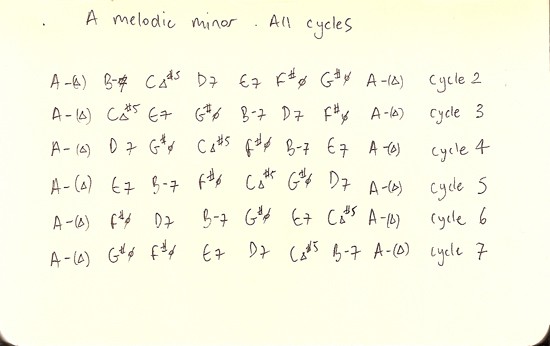 . A melodic minor . All cycles
A-(Δ) B-ø CΔ#5 D7 E7 F#ø G#ø A-(Δ) cycle 2
A-(Δ) CΔ#5 E7 G#ø B-7 D7 F#ø A-(Δ) cycle 3
A-(Δ) D7 G#ø CΔ#5 F#ø B-7 E7 A-(Δ) cycle 4
A-(Δ) E7 B-7 F#ø CΔ#5 G#ø D7 A-(Δ) cycle 5
A-(Δ) F#ø D7 B-7 G#ø E7 CΔ#5 A-(Δ) cycle 6
A-(Δ) G#ø F#ø E7 D7 CΔ#5 B-7 A-(Δ) cycle 7